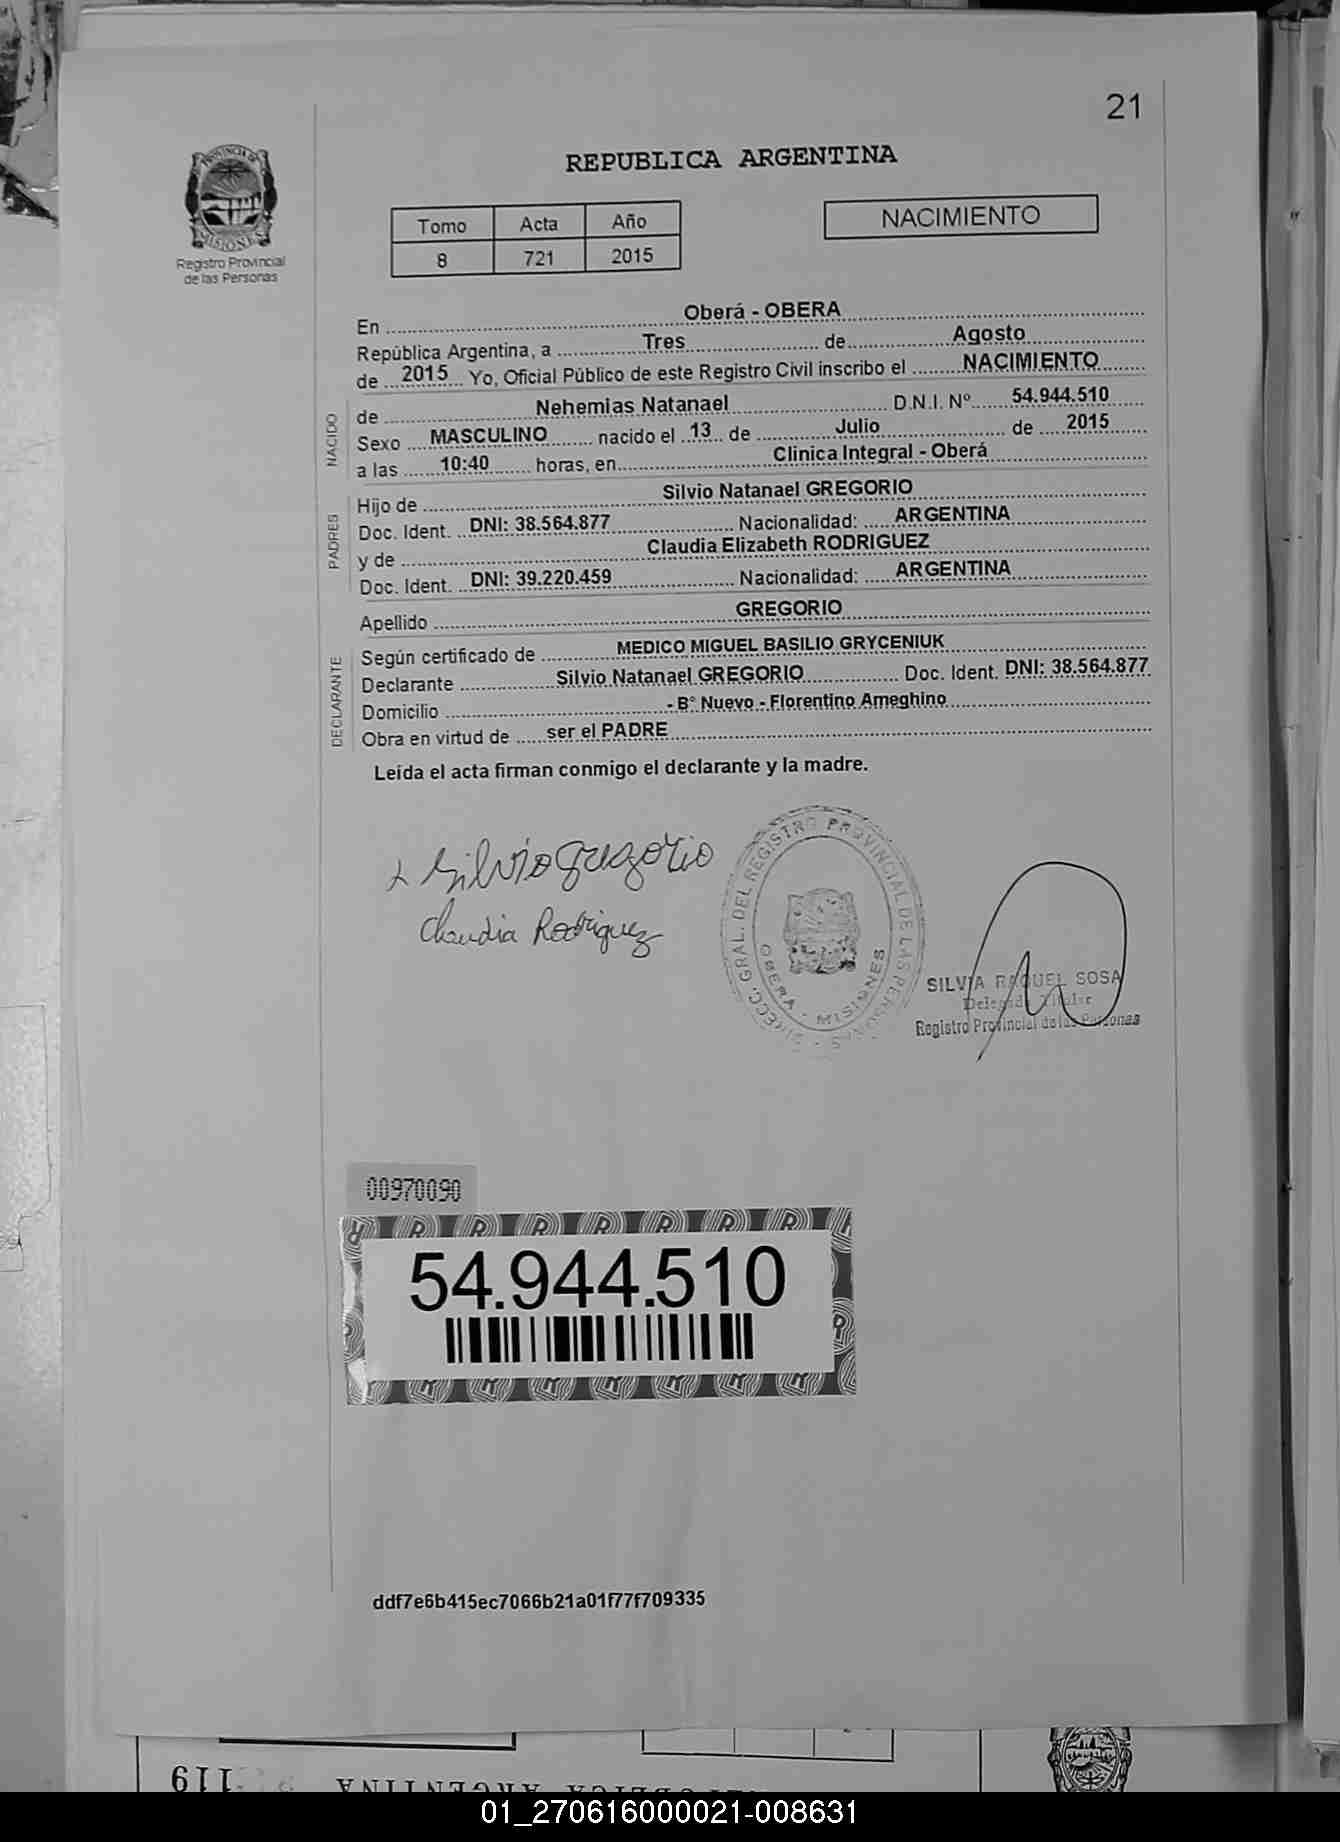 21
PROVINCIA DE
MISIONES
Registro Provincial
de las Personas
REPUBLICA ARGENTINA
Tomo Acta Año
8 721 2015
NACIMIENTO
En Oberá - OBERA
República Argentina, a Tres de Agosto
de 2015 Yo, Oficial Público de este Registro Civil inscribo el NACIMIENTO
NACIDO
de Nehemias Natanael D.N.I. Nº 54.944.510
Sexo MASCULINO nacido el 13 de Julio de 2015
a las 10:40 horas, en Clinica Integral - Oberá
PADRES
Hijo de Silvio Natanael GREGORIO
Doc. Ident. DNI: 38.564.877 Nacionalidad: ARGENTINA
y de Claudia Elizabeth RODRIGUEZ
Doc. Ident. DNI: 39.220.459 Nacionalidad: ARGENTINA
Apellido GREGORIO
DECLARANTE
Según certificado de MEDICO MIGUEL BASILIO GRYCENIUK
Declarante Silvio Natanael GREGORIO Doc. Ident. DNI: 38.564.877
Domicilio - B° Nuevo - Florentino Ameghino
Obra en virtud de ser el PADRE
Leída el acta firman conmigo el declarante y la madre.
Silvio Gregorio
Claudia Rodriguez
DIRECC. GRAL. DEL REGISTRO PROVINCIAL DE LAS PERSONAS
OBERA - MISIONES
SILVIA RAQUEL SOSA
Delegada Titular
Registro Provincial de las Personas
00970090
54.944.510
ddf7e6b415ec7066b21a01f77f709335
119
REPUBLICA ARGENTINA
01_270616000021-008631